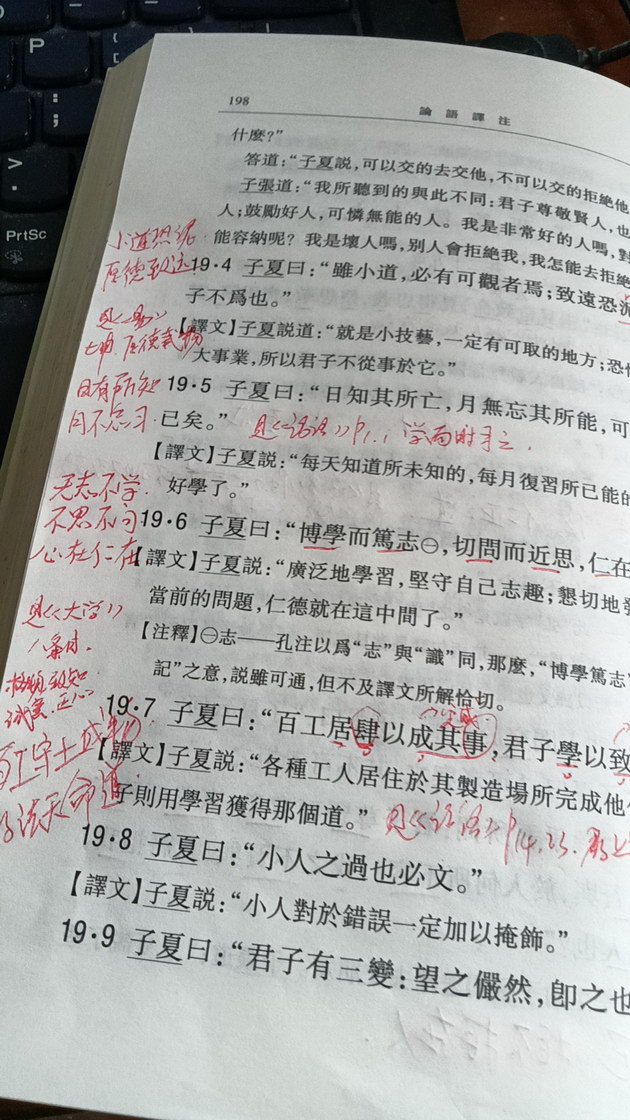 P
PrtSc
198
論語譯注
什麼?”
答道:“子夏説,可以交的去交他,不可以交的拒絶他
子張道:“我所聽到的與此不同:君子尊敬賢人,也
人;鼓勵好人,可憐無能的人。我是非常好的人嗎,對
能容納呢?我是壞人嗎,别人會拒絶我,我怎能去拒絶
19·4 子夏曰:“雖小道,必有可觀者焉;致遠恐泥
子不爲也。”
【譯文】子夏説道:“就是小技藝,一定有可取的地方;恐怕
大事業,所以君子不從事於它。”
日有所知
19·5 子夏曰:“日知其所亡,月無忘其所能,可
月不忘习
已矣。”
见《论语》P1.1 学而时习之.
【譯文】子夏説:“每天知道所未知的,每月復習所已能的
好學了。”
无志不学
不思不问
心在仁在
19·6 子夏曰:“博學而篤志㊀,切問而近思,仁在
【譯文】子夏説:“廣泛地學習,堅守自己志趣;懇切地發
當前的問題,仁德就在這中間了。”
见《大学》
八条目.
格物致知
诚意.正心
【注釋】㊀志——孔注以爲“志”與“識”同,那麽,“博學篤志”
記”之意,説雖可通,但不及譯文所解恰切。
19·7 子夏曰:“百工居肆以成其事,君子學以致
【譯文】子夏説:“各種工人居住於其製造場所完成他
子則用學習獲得那個道。”
见《论语》P14.23.
19·8 子夏曰:“小人之過也必文。”
【譯文】子夏説:“小人對於錯誤一定加以掩飾。”
19·9 子夏曰:“君子有三變:望之儼然,卽之也